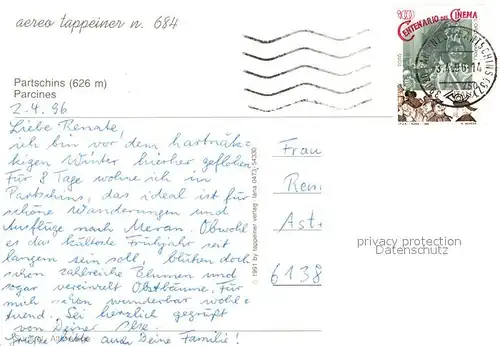 aereo tappeiner n. 684
Partschins (626 m)
Parcines
2.4.96
Liebe Renate,
ich bin vor dem hartnäk-
kigen Winter hierher geflohen.
Für 8 Tage wohne ich in
Partschins, das ideal ist für
schöne Wanderungen und
Ausflüge nach Meran. Obwohl
es das kälteste Frühjahr seit
langem sein soll, blühen doch
schon zahlreiche Blumen und
sogar vereinzelt Obstbäume. Für
mich schon wunderbar wohl-
tuend. Sei herzlich gegrüßt
von Deiner Ilse.
Grüße bitte auch Deine Familie!
© 1991 by tappeiner verlag lana 0473-54330
CENTENARIO DEL CINEMA
Frau
Ren
Ast
6138
privacy protection
Datenschutz